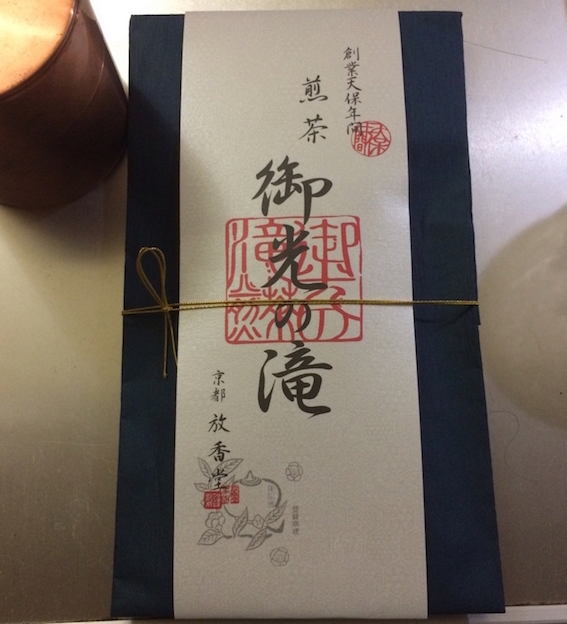 創業天保年間
煎茶
御光の滝
京都 放香堂